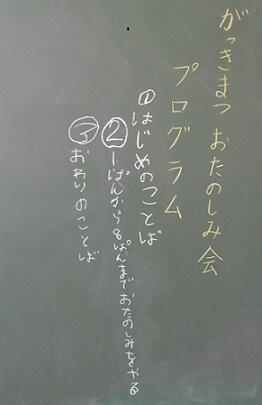 がっきまつおたのしみ会
プログラム
①はじめのことば
②1ぱんから8ぱんまでおたのしみをやる
③おわりのことば